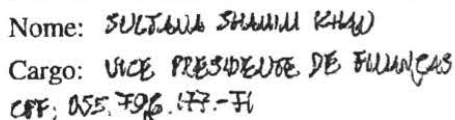 Nome: SULTANA SHAMIM KHAN
Cargo: VICE PRESIDENTE DE FINANÇAS
CPF: 055.796.177-71